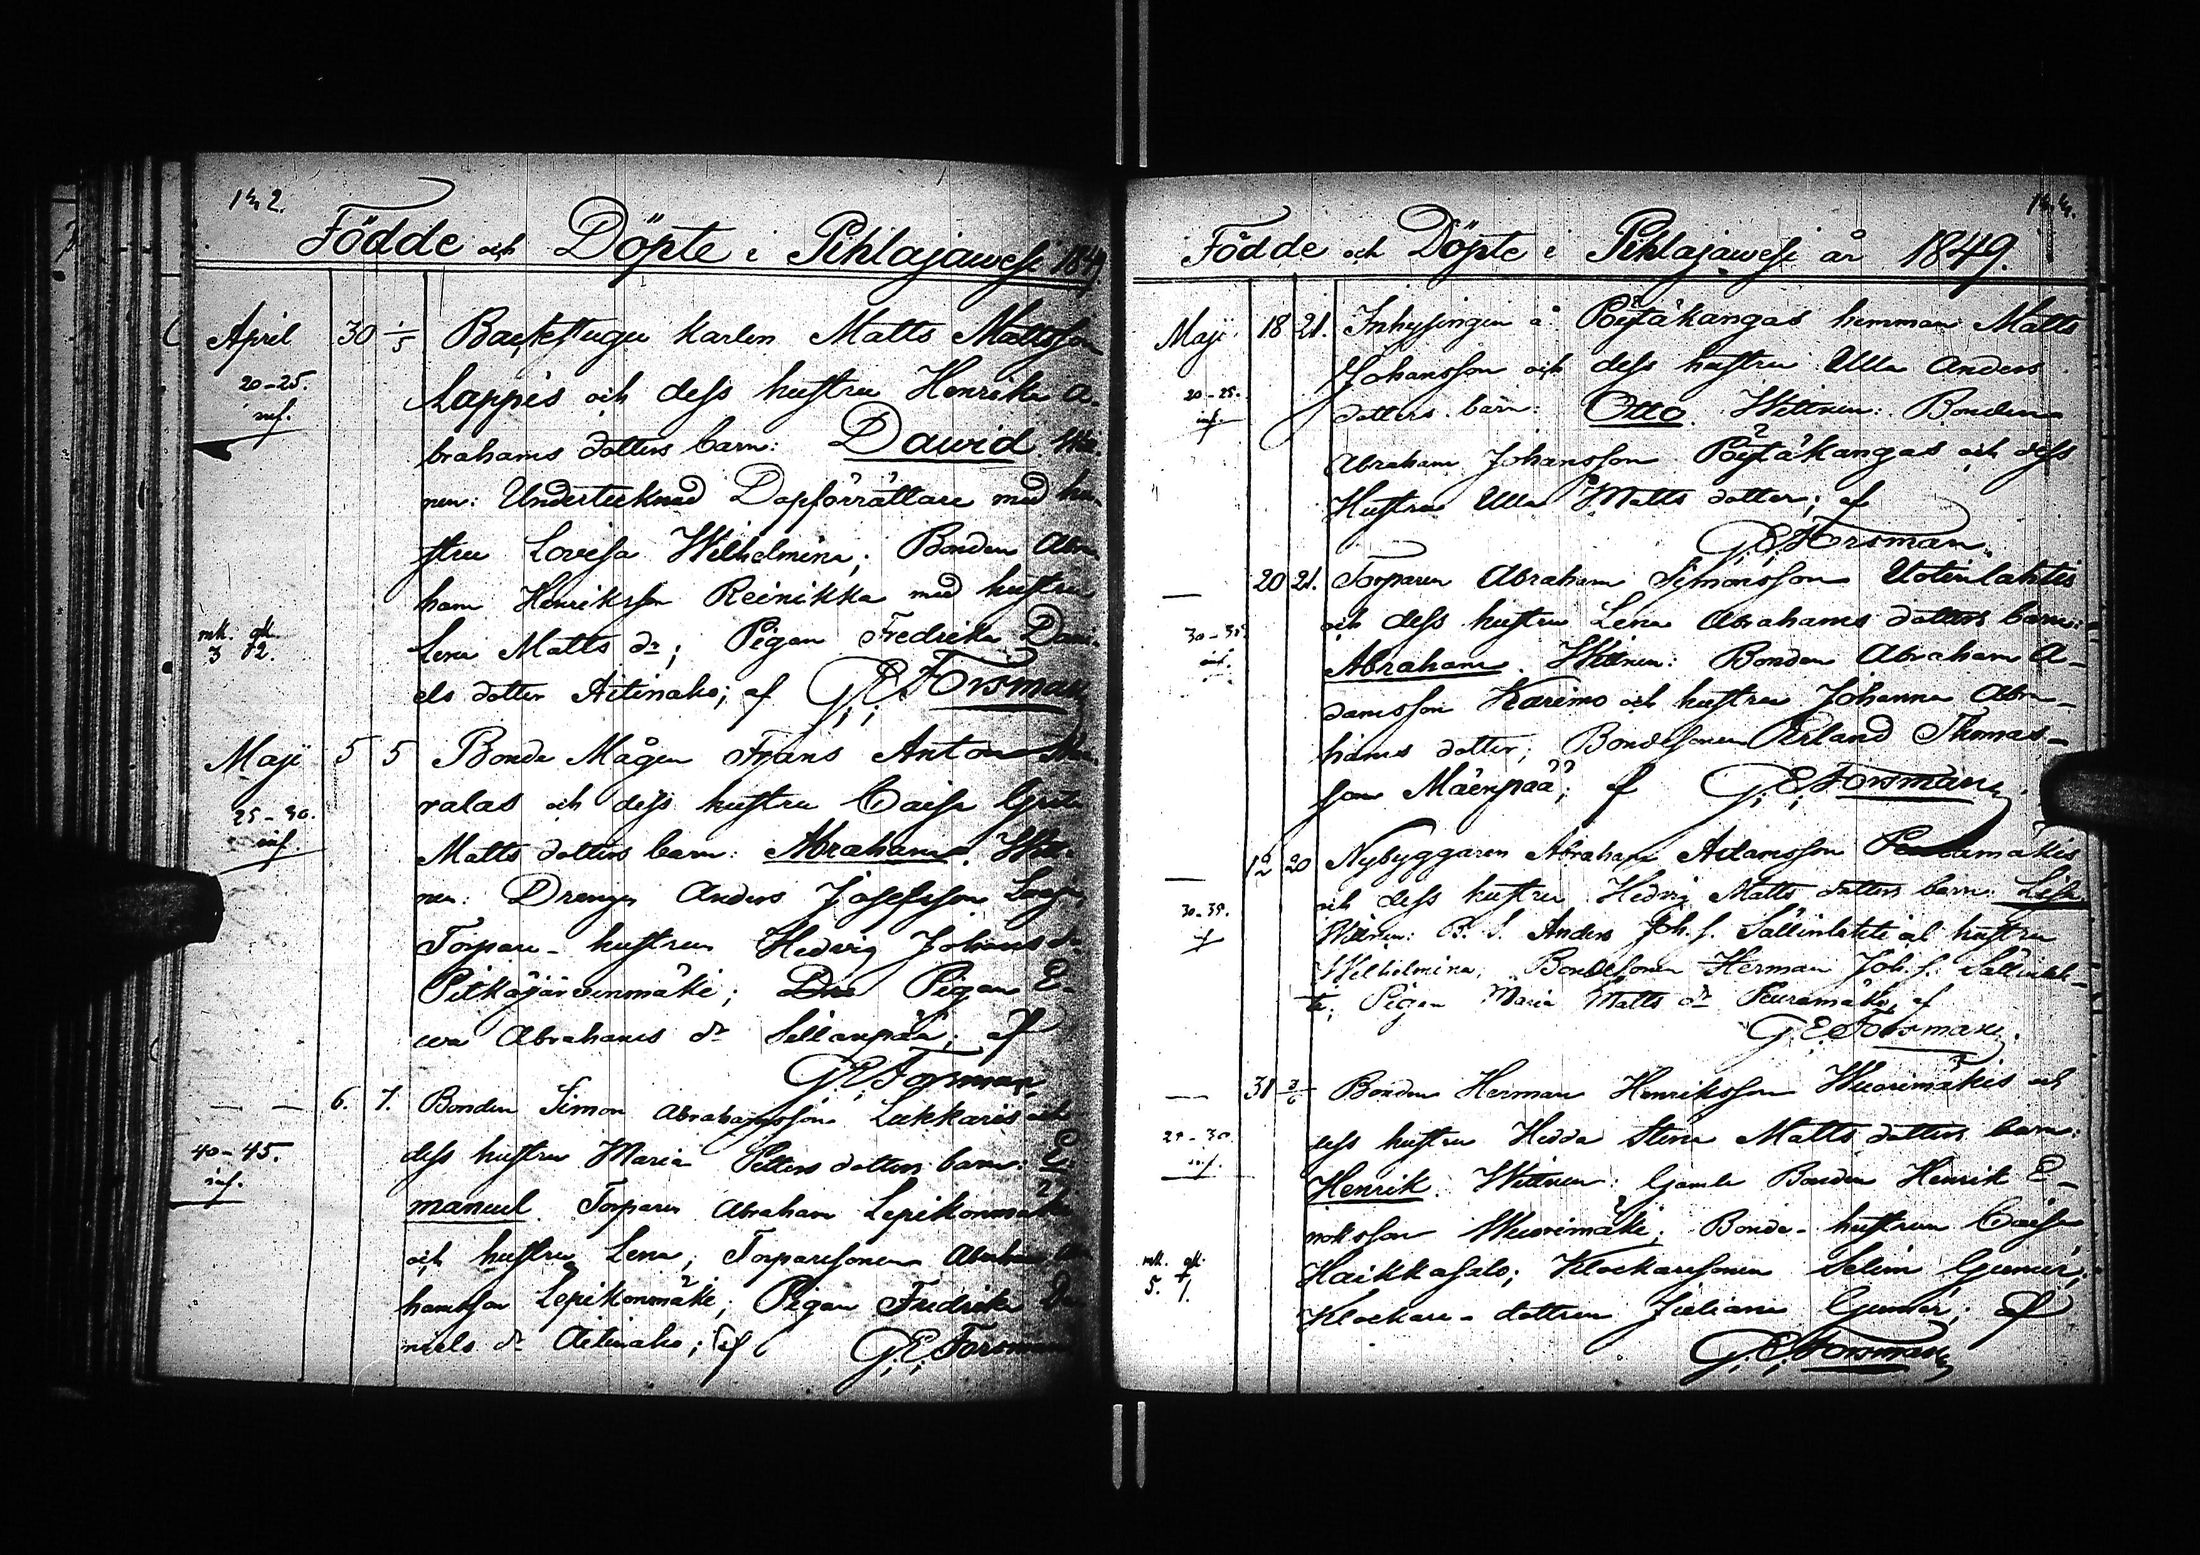 142.
Födde och Döpte i Pihlajawesi 1849
April 30 1/5 Backstugu karlen Matts Mattsson
20-25. Lappis och dess hustru Henrika A-
inf. brahams dotters barn: Dawid. Witt-
nen: Undertecknad Dopförrättare med hu-
stru Lovisa Wilhelmina; Bonden Abra
ham Henriksson Reinikka med hustru
mk. qk. Lena Matts dr; Pigan Fredrika Dani-
3 2. els dotter Aitinaho; af G. E. Forsman
Maji 5 5 Bonde Mågen Frans Anton
ralas och dess hustru Caisa Greta
25-30. Matts dotters barn: Abraham. Witt-
inf. nen: Drengen Anders Josefsson
Torpare-hustrun Hedvig Johans dr
Pitkäjärvenmäki; Pigan E-
va Abrahams dr Sillanpää; af
G. E. Forsman
6. 7. Bonden Simon Abrahamsson Lukkaris och
40-45. dess hustru Maria Petters dotters barn: E-
inf. manuel. Torparen Abraham Lepikonmäki
och hustru Lena; Torparesonen Abraham Abra
hamsson Lepikonmäki; Pigan Fredrika Da
niels dr Aitinaho; af G. E. Forsman
Födde och Döpte i Pihlajawesi år 1849.
Maji 18 21. Inhysingen å Pöytäkangas hemman Matts
Johansson och dess hustru Ulla Anders
20-25. dotters barn: Otto. Wittnen: Bonden
inf. Abraham Johansson Pöytäkangas och dess
Hustru Ulla Matts dotter; af
G. E. Forsman.
20 21. Torparen Abraham Simonsson Uotinlahtis
och dess hustru Lena Abrahams dotters barn:
30-35. Abraham. Wittnen: Bonden Abraham A-
inf. damsson Karimo och hustru Johanna Abra-
hams dotter; Bondesonen Erland Thomas-
son Mäenpää; af G. E. Forsman.
20 Nybyggaren Abraham Adamsson
och dess hustru Hedvig Matts dotters barn: Lisa
30-35. Wittnen: B. S. Anders Joh. s. Sällinlahti och hustru
Wilhelmina; Bondesonen Herman Joh. s. Sällinlah-
ti; Pigan Maria Matts dr Peuramäki; af
G. E. Forsman.
31 2/6 Bonden Herman Henriksson Wuorimäkis och
dess hustru Hedda Stina Matts dotters barn:
25-30. Henrik. Wittnen: Gamle Bonden Henrik E-
inf. noksson Wuorimäki; Bonde-hustrun Caisa
mk. qk. Haikkasalo; Klockaresonen Selim Gumer;
5. 1. Klockare-dottren Juliana Gumer; af
G. E. Forsman